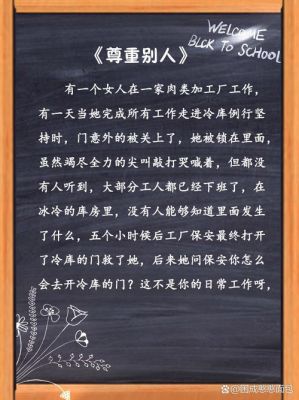 WELCOME
BLCK TO SCHOOL
《尊重别人》
有一个女人在一家肉类加工厂工作，
有一天当她完成所有工作走进冷库例行坚
持时，门意外的被关上了，她被锁在里面，
虽然竭尽全力的尖叫敲打哭喊着，但都没
有人听到，大部分工人都已经下班了，在
冰冷的库房里，没有人能够知道里面发生
了什么，五个小时候后工厂保安最终打开
了冷库的门救了她，后来她问保安你怎么
会去开冷库的门？这不是你的日常工作呀，